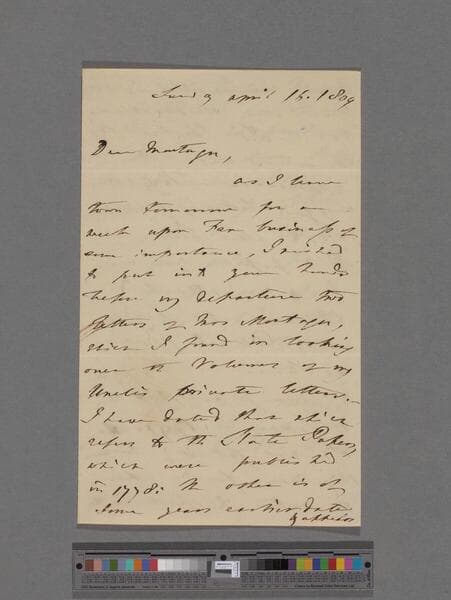 Sunday april 16. 1809
Dear Montagu,
as I leave
town tomorrow for a
week upon Fee business of
some importance, I
to put into your hands
before my departure two
Letters of Mrs Montagu,
which I found in looking
over the Volumes of my
Uncle's private letters.
I have dated that which
refers to the State Papers,
which were published
in 1778: the other is of
some years earlier date
& appears